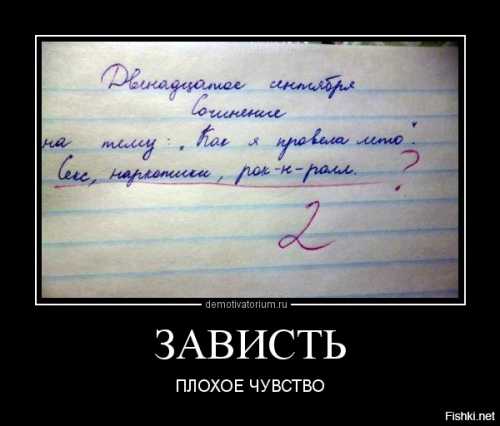 Двенадцатое сентября
Сочинение
на тему: „Как я провела лето".
Секс, наркотики, рок-н-ролл. ?
2
demotivatorium.ru
ЗАВИСТЬ
ПЛОХОЕ ЧУВСТВО
Fishki.net